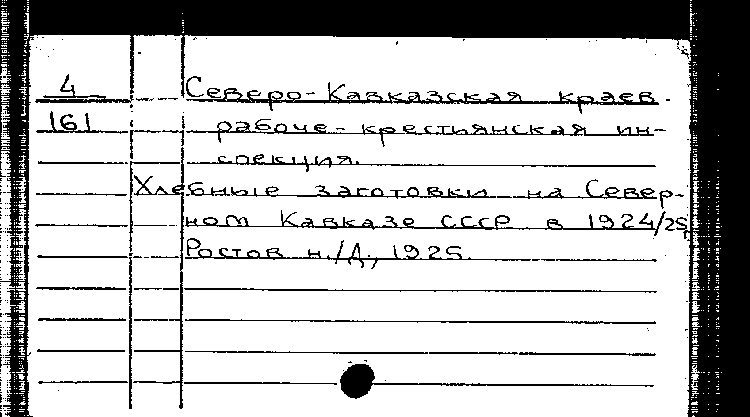 4
161
Северо-Кавказская краев.
рабоче-крестьянская ин-
спекция.
Хлебные заготовки на Север-
ном Кавказе СССР в 1924/25,
Ростов н./Д., 1925.